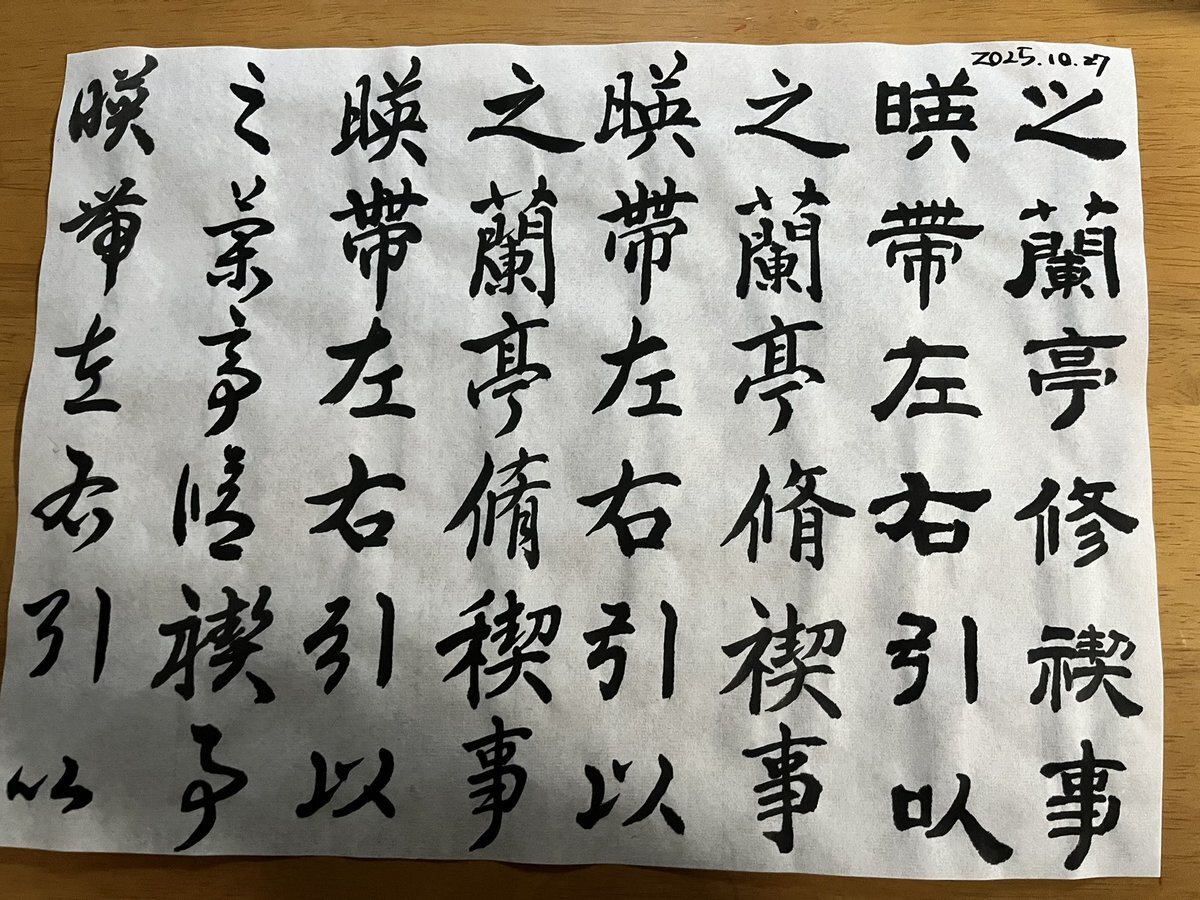 2025.10.27
之蘭亭修禊事
暎帶左右引以
之蘭亭脩禊事
暎帶左右引以
之蘭亭脩稧事
暎帶左右引以
之蘭亭脩禊事
暎帶左右引以